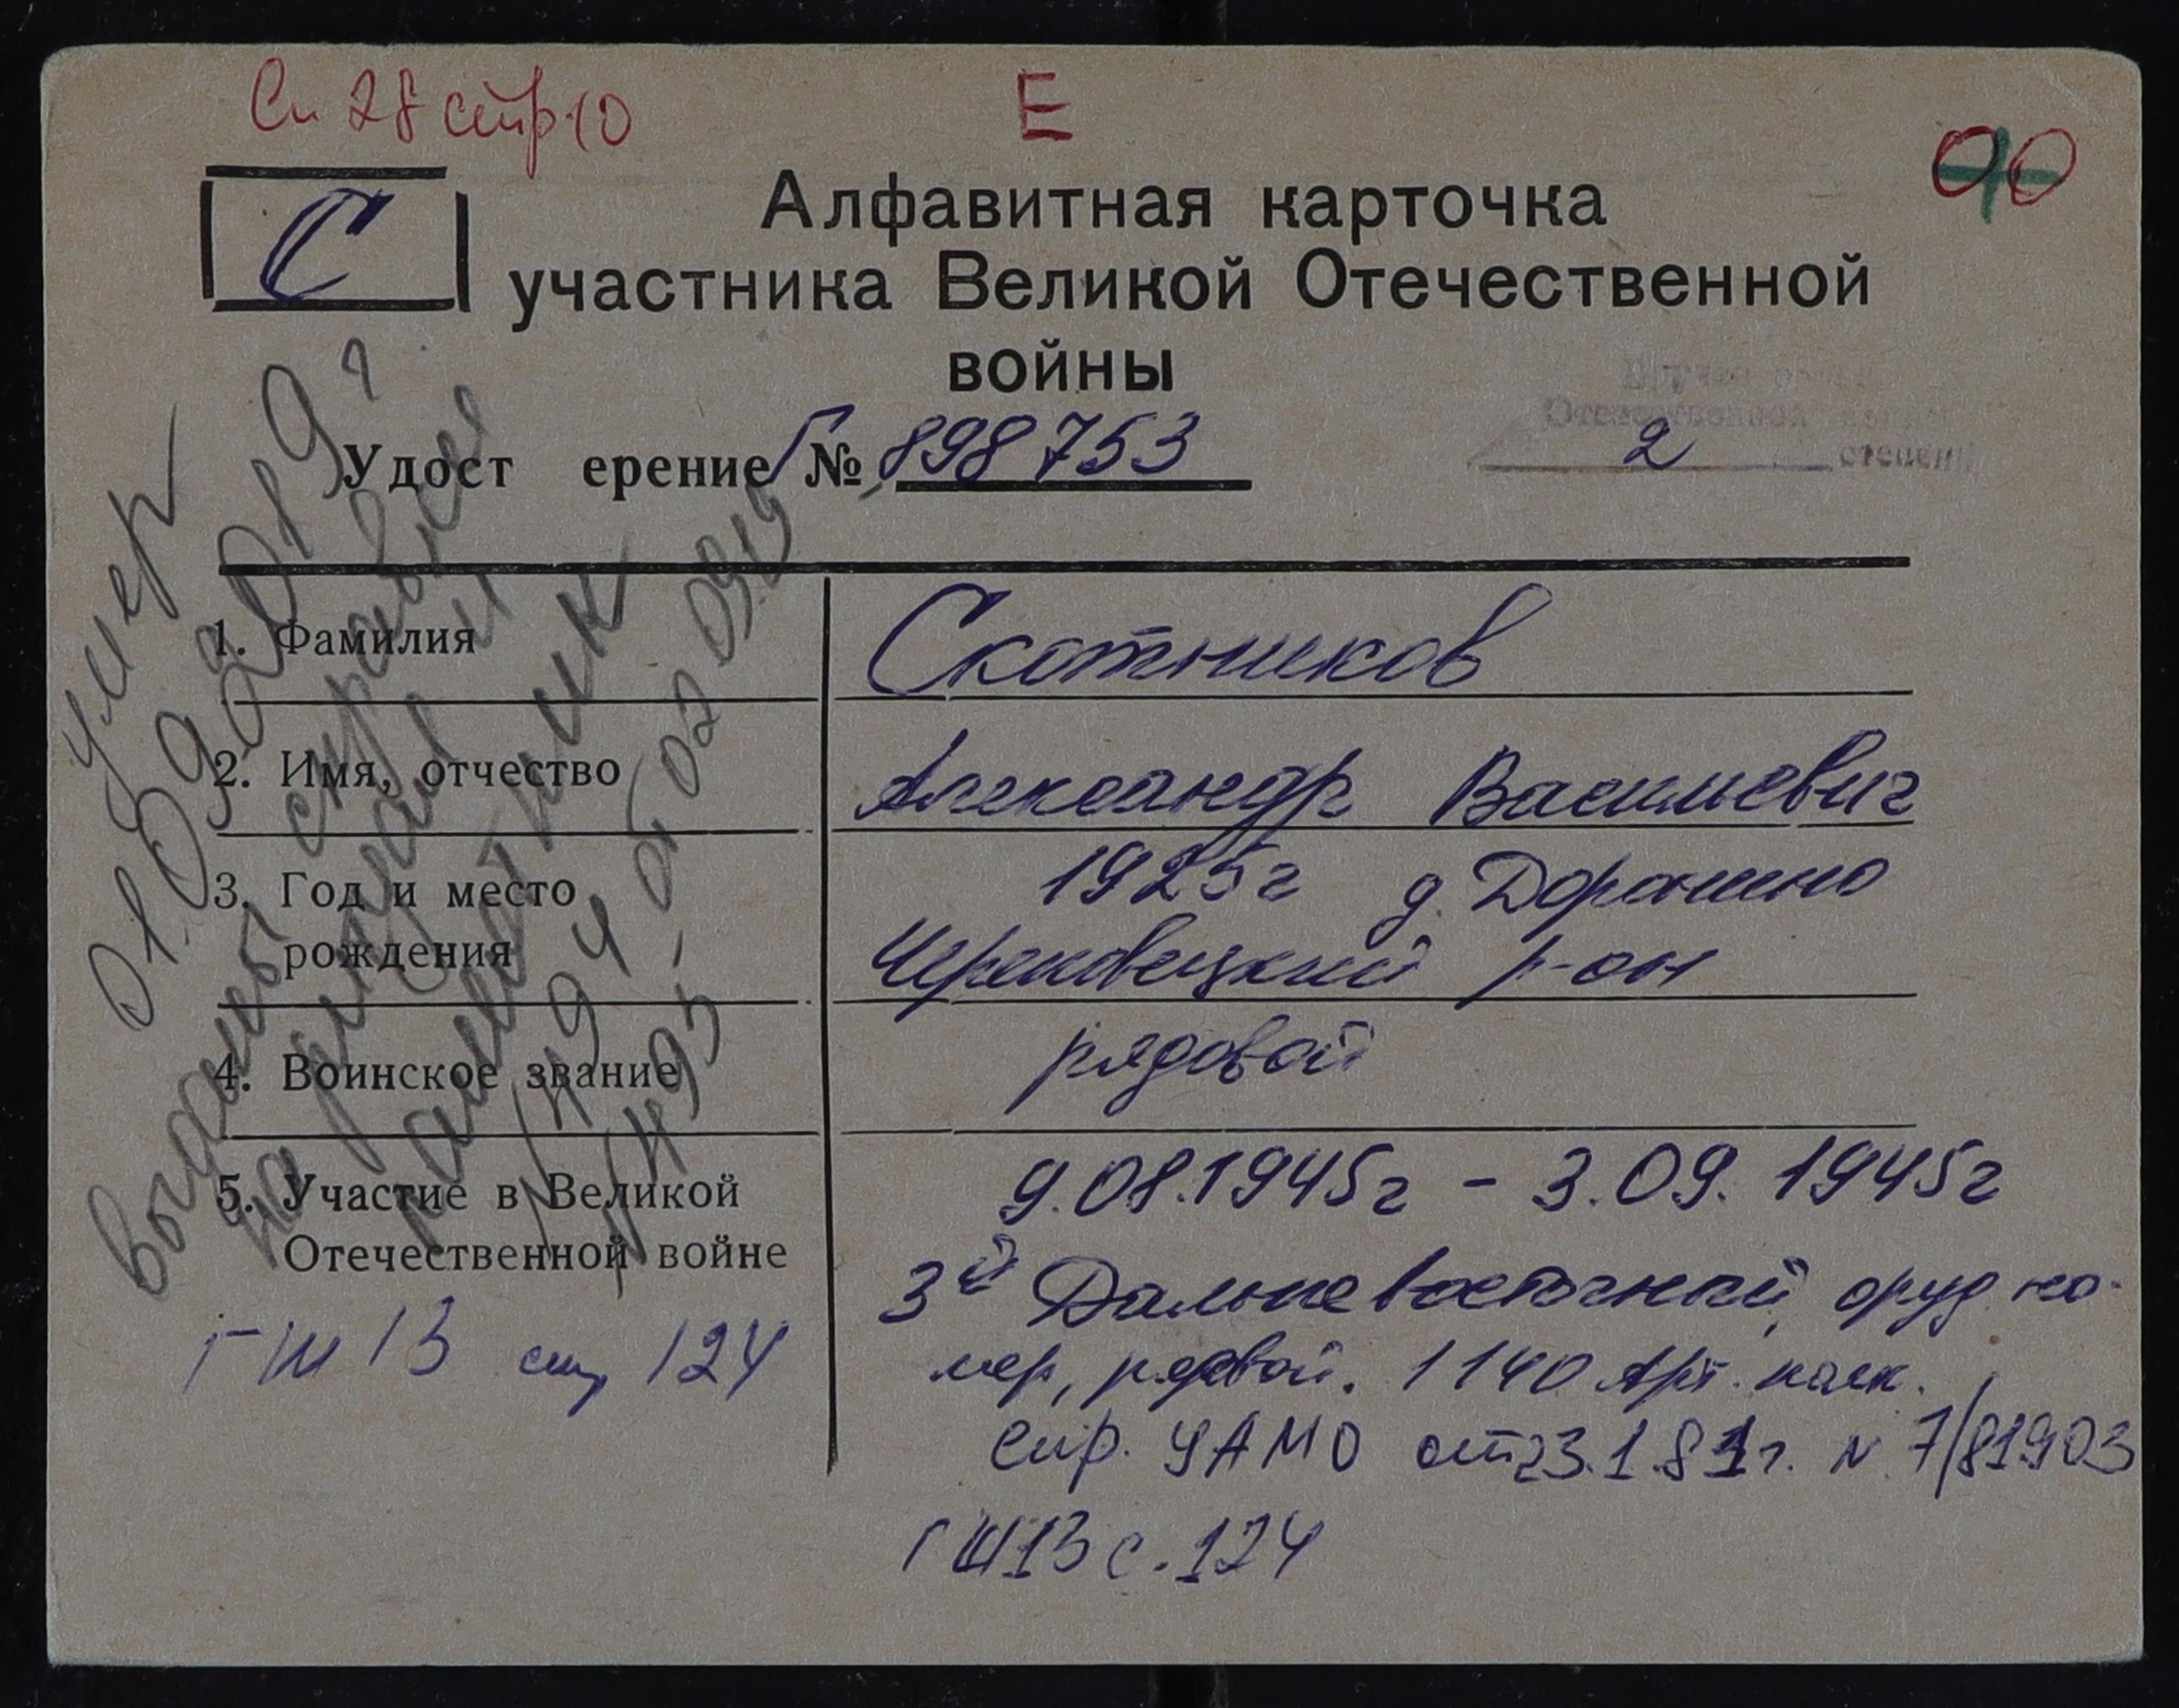 Сп 28 стр 10
Е
С
Алфавитная карточка
участника Великой Отечественной
войны
Вручен орден
Отечественной войны
2 степени
Удост ерение Г № 898753
1. Фамилия
Скотников
2. Имя, отчество
Александр Васильевич
3. Год и место
рождения
1925г д. Доронино
Череповецкий р-он
4. Воинское звание
рядовой
5. Участие в Великой
Отечественной войне
9.08.1945г - 3.09.1945г
3й Дальневосточный, оруд. но-
мер, рядовой. 1140 Арт. полк.
спр. ЦАМО от 23.1.81г. N 7/81903
ГШ 13 с. 124
ГШ 13 стр 124
умер
01.09.2019г
выданы справки
на
памятник
1/1494 от 02.09.19
1/1495-